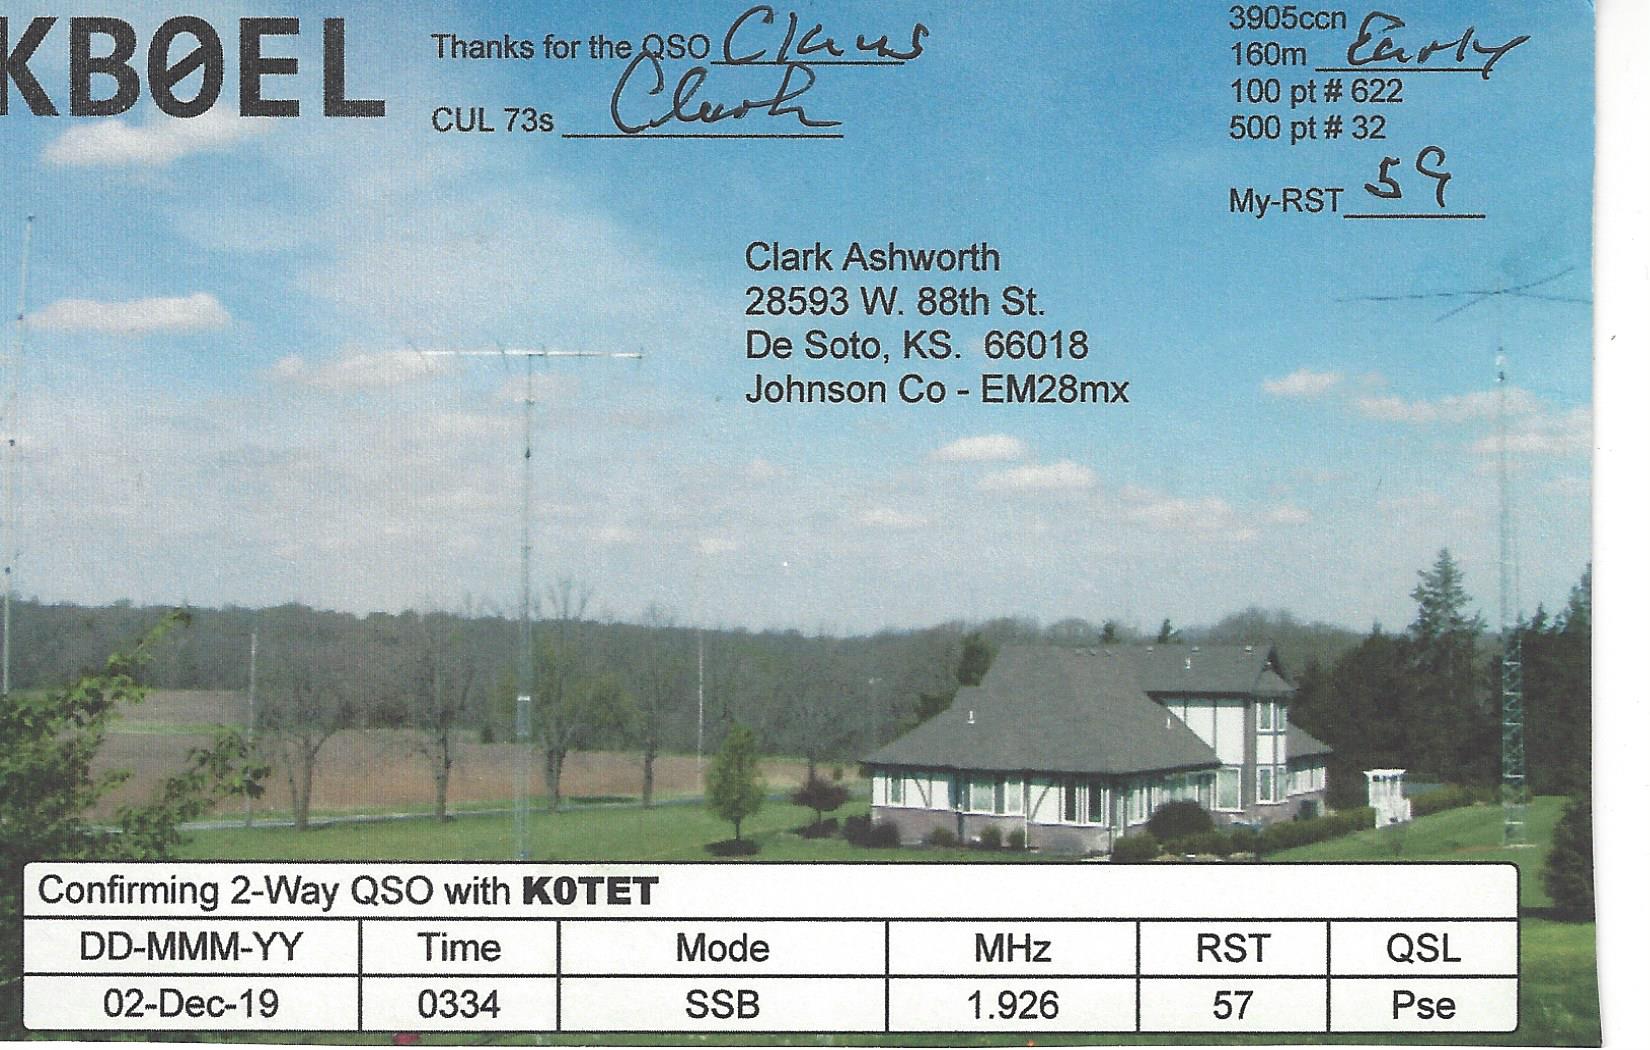 KB0EL
Thanks for the QSO Claus
CUL 73s Clark
3905ccn
160m Early
100 pt # 622
500 pt # 32
My-RST 59
Clark Ashworth
28593 W. 88th St.
De Soto, KS. 66018
Johnson Co - EM28mx
Confirming 2-Way QSO with K0TET
DD-MMM-YY Time Mode MHz RST QSL
02-Dec-19 0334 SSB 1.926 57 Pse